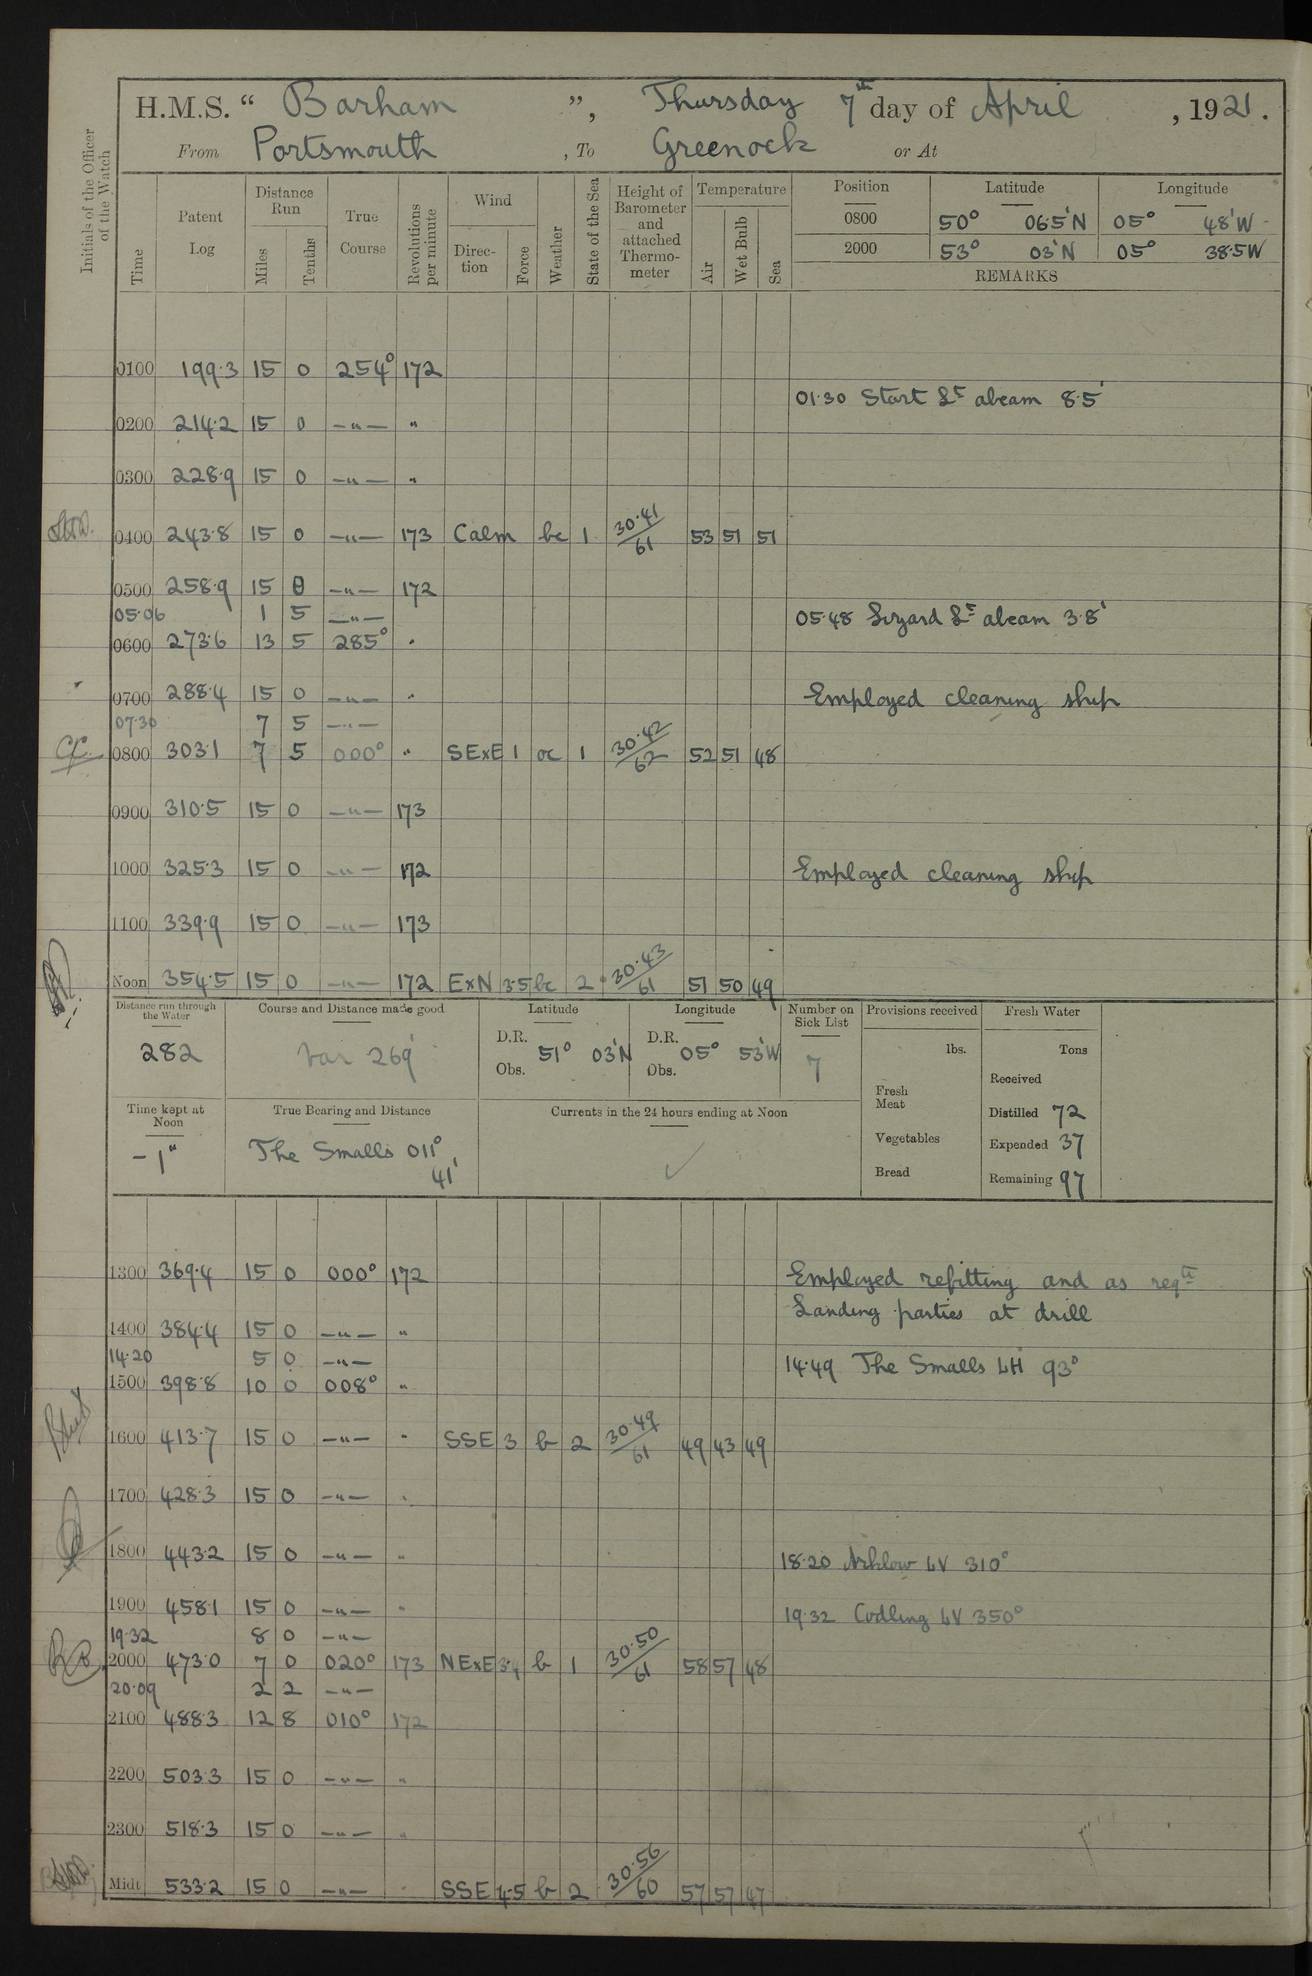 H.M.S. “ Barham ”, Thursday 7th day of April , 1921.
From Portsmouth , To Greenock or At
Initials of the Officer of the Watch
Time Patent Log Distance Run Miles Tenths True Course Revolutions per minute Wind Direc- tion Force Weather State of the Sea Height of Barometer and attached Thermo- meter Temperature Air Wet Bulb Sea Position Latitude Longitude
0800 50° 06·5'N 05° 48'W
2000 53° 03'N 05° 38·5W
REMARKS
0100 199·3 15 0 254° 172
01·30 Start Lt abeam 8·5'
0200 214·2 15 0 —"— "
0300 228·9 15 0 —"— "
0400 243·8 15 0 —"— 173 Calm bc 1 30·41/61 53 51 51
0500 258·9 15 0 —"— 172
05·06 1 5 —"— 05·48 Lizard Lt abeam 3·8'
0600 273·6 13 5 285° "
0700 288·4 15 0 —"— " Employed cleaning ship
07·30 7 5 —"—
0800 303·1 7 5 000° " SExE 1 oc 1 30·42/62 52 51 48
0900 310·5 15 0 —"— 173
1000 325·3 15 0 —"— 172 Employed cleaning ship
1100 339·9 15 0 —"— 173
Noon 354·5 15 0 —"— 172 ExN 3·5 bc 2 30·43/61 51 50 49
Distance run through the Water Course and Distance made good Latitude Longitude Number on Sick List Provisions received Fresh Water
282 Var 269' D.R. 51° 03'N D.R. 05° 53'W 7 lbs. Tons
Obs. Obs. Received
Fresh Meat
Time kept at Noon True Bearing and Distance Currents in the 24 hours ending at Noon Distilled 72
Vegetables Expended 37
-1" The Smalls 011° 41' Bread Remaining 97
1300 369·4 15 0 000° 172 Employed refitting and as reqte
Landing parties at drill
1400 384·4 15 0 —"— "
14·20 5 0 —"— 14·49 The Smalls LH 93°
1500 398·8 10 0 008° "
1600 413·7 15 0 —"— " SSE 3 b 2 30·49/61 49 43 49
1700 428·3 15 0 —"— "
1800 443·2 15 0 —"— " 18·20 Arklow LV 310°
1900 458·1 15 0 —"— " 19·32 Codling LV 350°
19·32 8 0 —"—
2000 473·0 7 0 020° 173 NExE 3·4 b 1 30·50/61 58 57 48
20·09 2 2 —"—
2100 488·3 12 8 010° 172
2200 503·3 15 0 —"— "
2300 518·3 15 0 —"— "
Midt 533·2 15 0 —"— " SSE 4·5 b 2 30·56/60 57 57 47